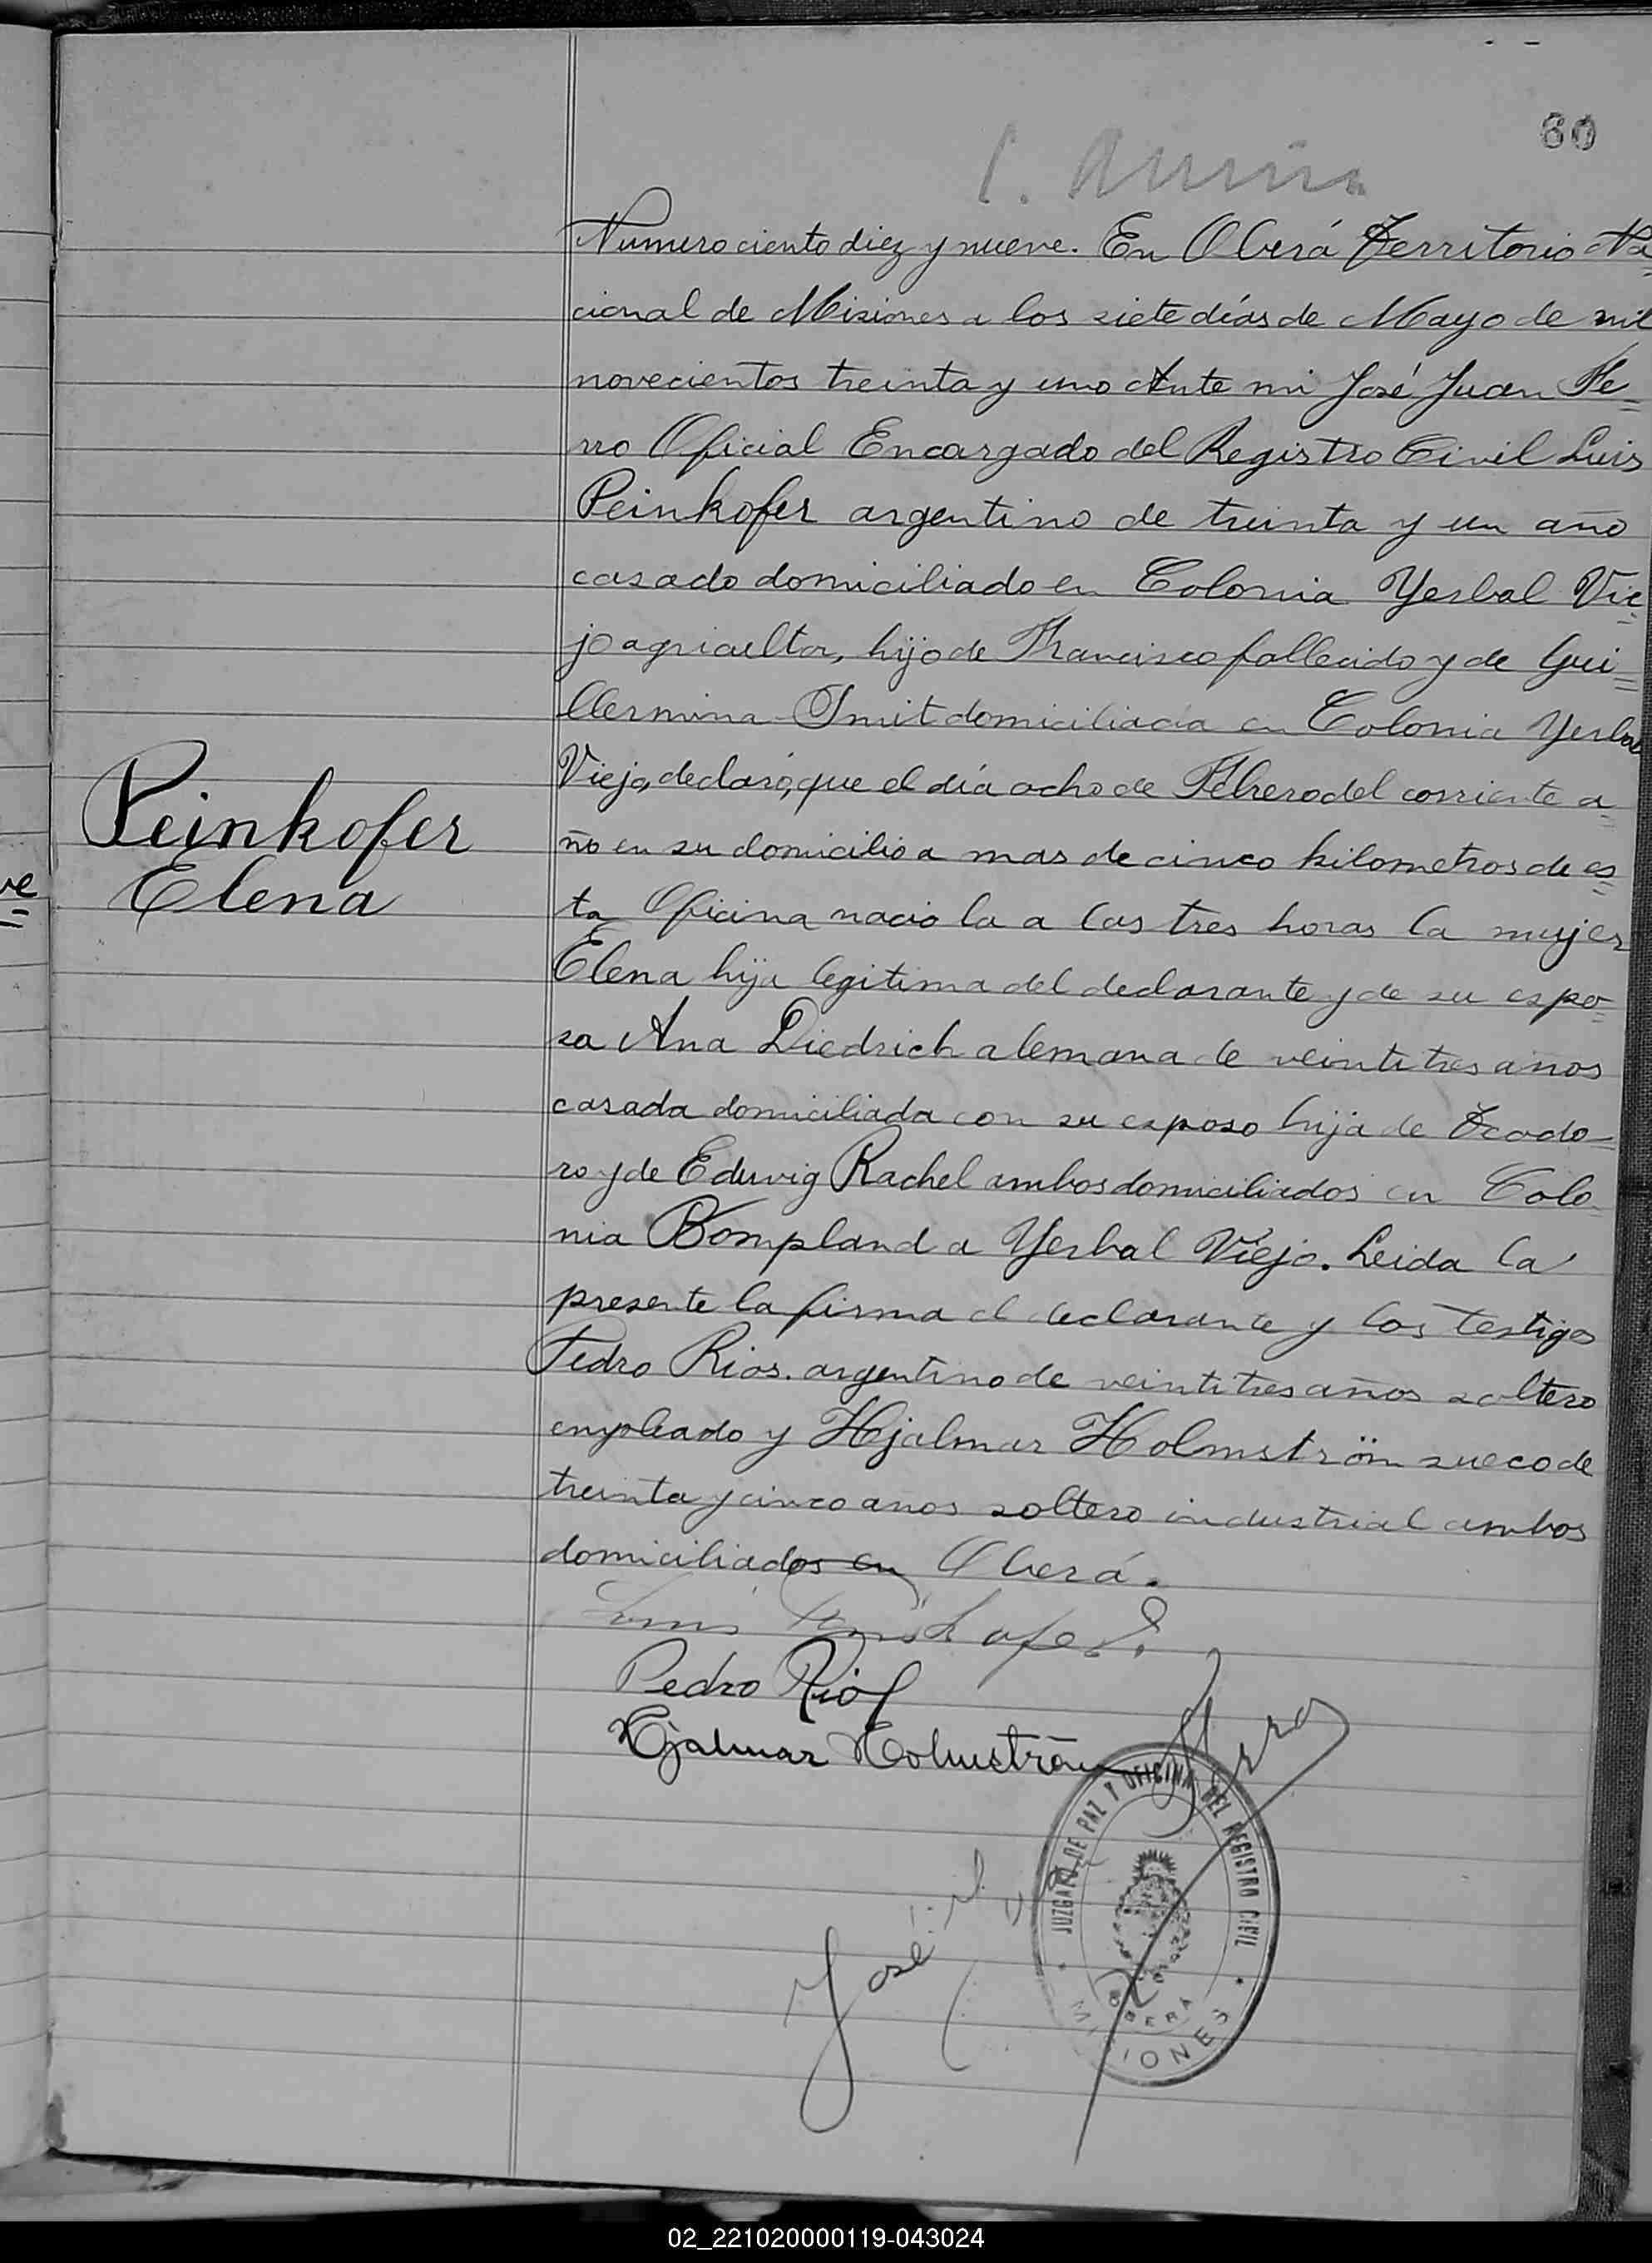 60
Numero ciento diez y nueve. En Oberá Territorio Na
cional de Misiones a los siete días de Mayo de mil
novecientos treinta y uno Ante mi José Juan Fe
rro Oficial Encargado del Registro Civil Luis
Peinkofer argentino de treinta y un año
casado domiciliado en Colonia Yerbal Vie
jo agricultor, hijo de Francisco fallecido y de Gui
llermina Smit domiciliada en Colonia Yerbal
Viejo, declaró, que el día ocho de Febrero del corriente a
ño en su domicilio a mas de cinco kilometros de es
Peinkofer
Elena
ta Oficina nacio la a las tres horas la mujer
Elena hija legitima del declarante y de su espo
sa Ana Diedrich alemana de veintitres años
casada domiciliada con su esposo hija de Teodo
ro y de Eduvig Rachel ambos domiciliados en Colo
nia Bompland a Yerbal Viejo. Leida la
presente la firma el declarante y los testigos
Pedro Rios. argentino de veintitres años soltero
empleado y Hjalmar Holmström sueco de
treinta y cinco anos soltero industrial ambos
domiciliados en Oberá.
Luis
Pedro Rios
Hjalmar Holmström
José Ferro
JUZGADO DE PAZ Y OFICINA DEL REGISTRO CIVIL
OBERA
MISIONES
02_221020000119-043024